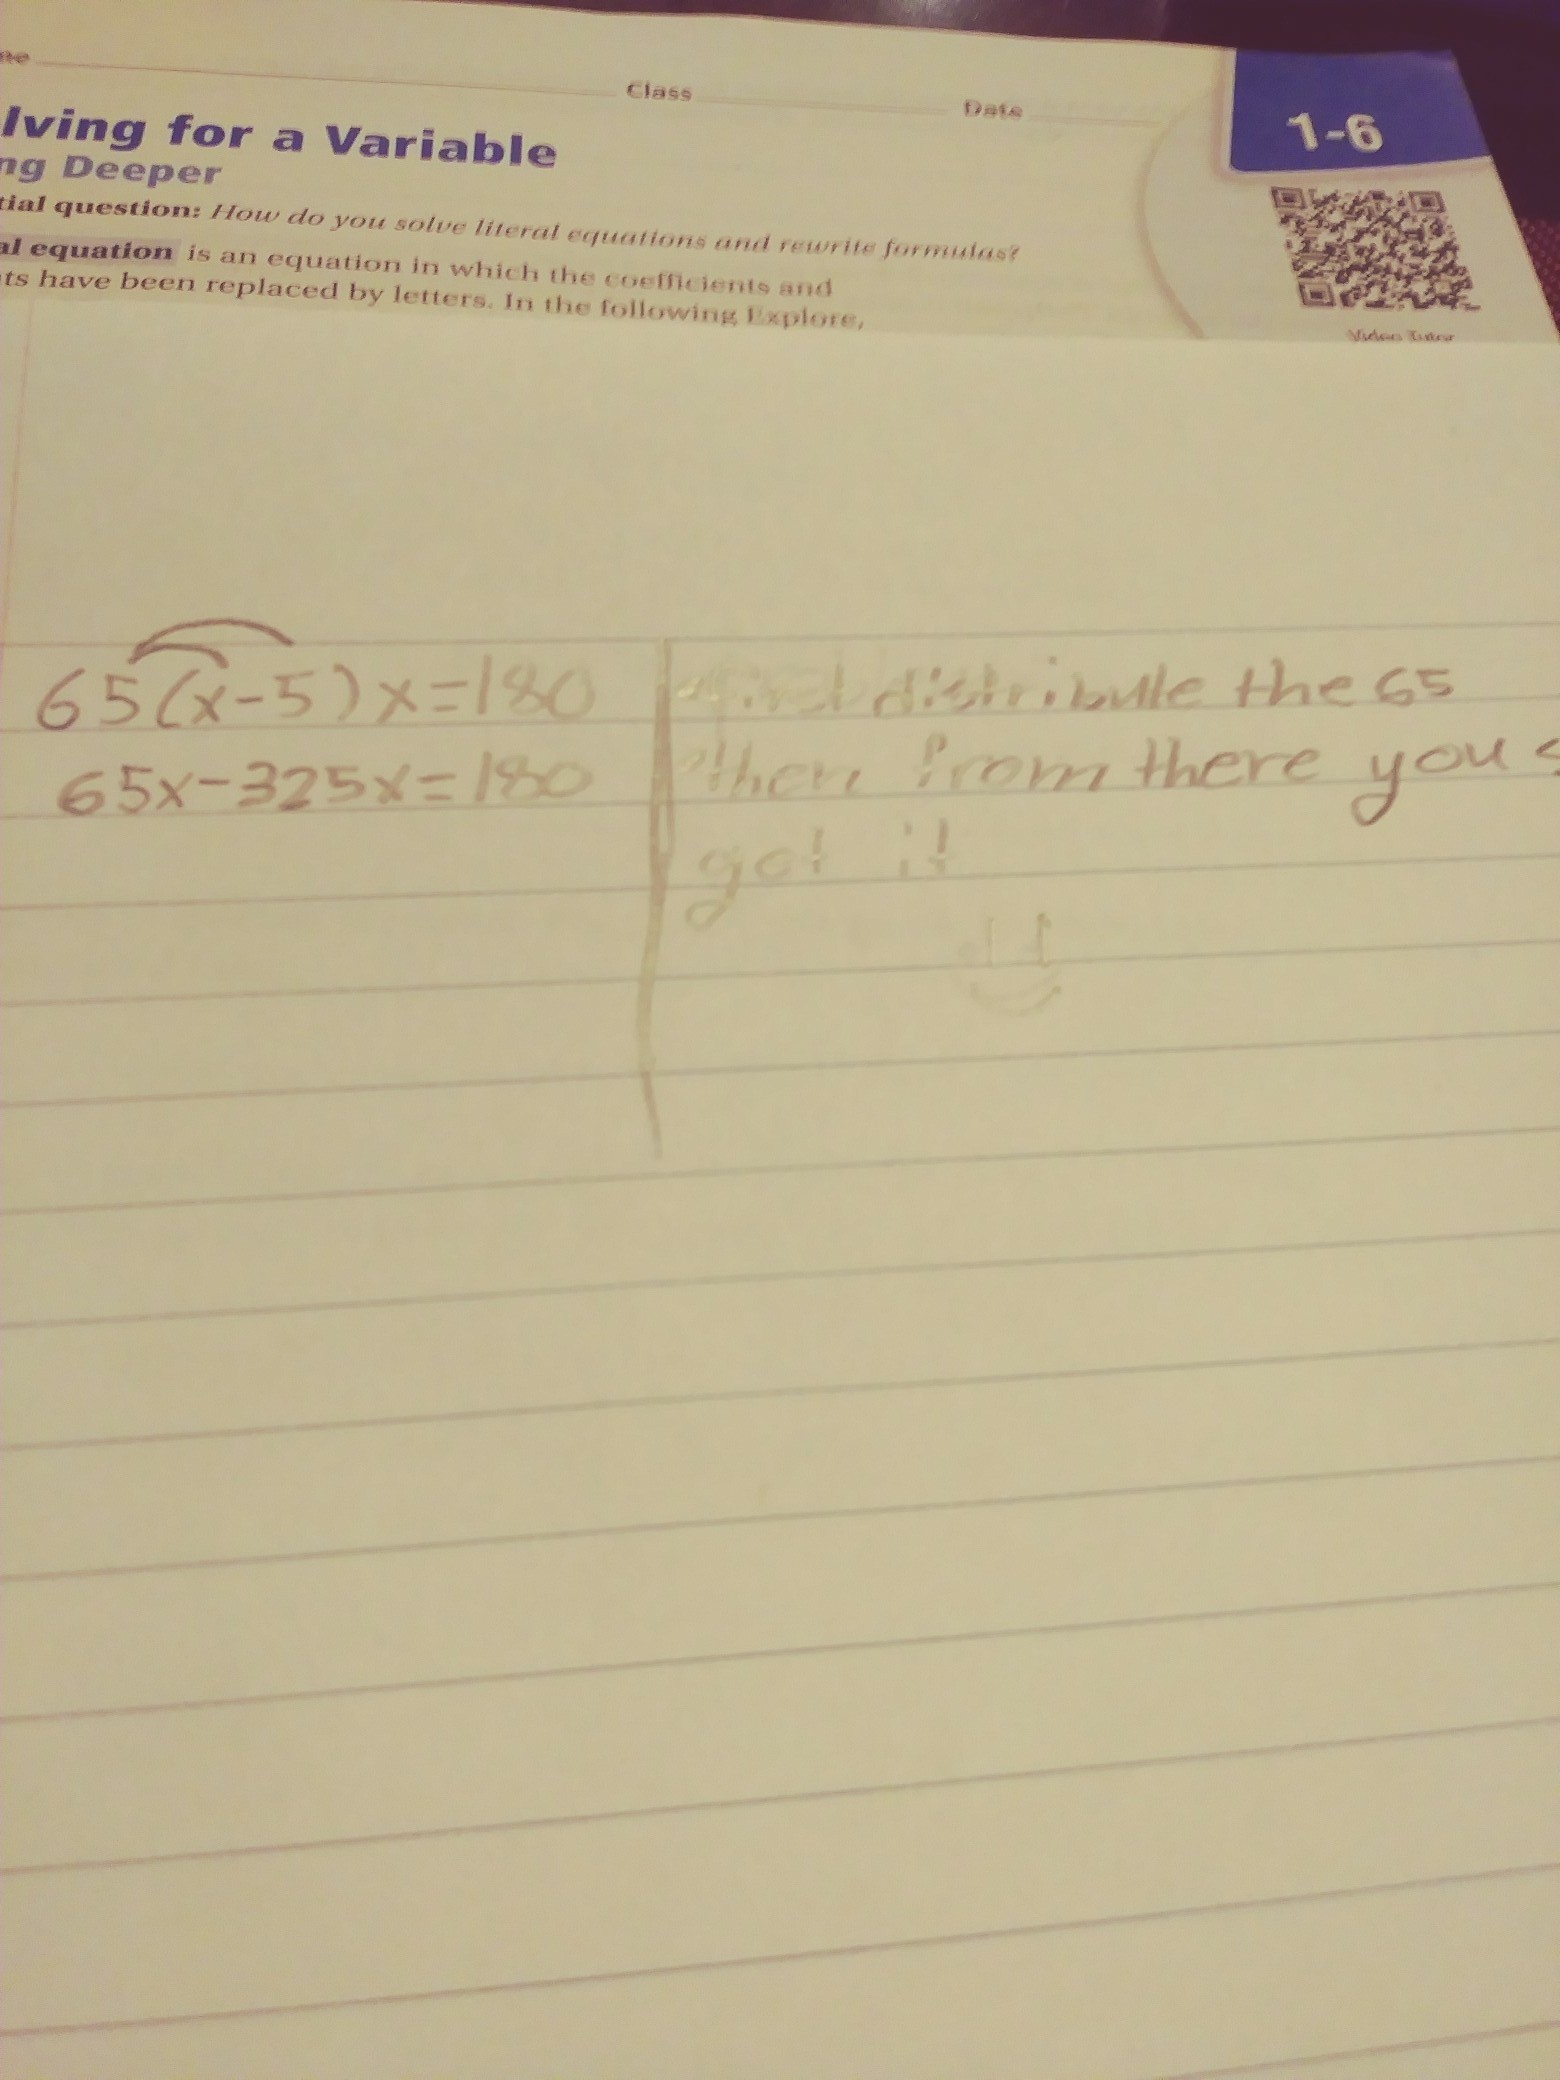 ne Class Date
1-6
lving for a Variable
ng Deeper
tial question: How do you solve literal equations and rewrite formulas?
al equation is an equation in which the coefficients and
ts have been replaced by letters. In the following Explore,
Video Tutor
65(x-5)x=180
65x-325x=180
first distribute the 65
then from there you
got it